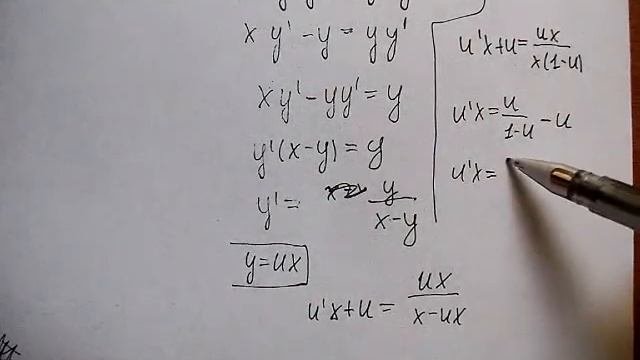 x y' - y = y y'
x y' - y y' = y
y'(x-y) = y
y' = y/(x-y)
y = ux
u'x + u = ux/(x-ux)
u'x + u = ux/(x(1-u))
u'x = u/(1-u) - u
u'x =